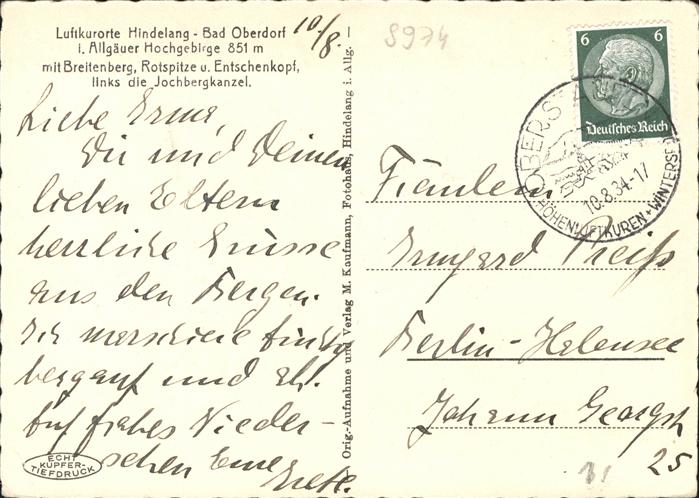 Luftkurorte Hindelang - Bad Oberdorf
i. Allgäuer Hochgebirge 851 m
mit Breitenberg, Rotspitze u. Entschenkopf,
links die Jochbergkanzel.
10/8.
Liebe Erma,
Dir und Deinen
lieben Eltern
herrliche Grüsse
aus den Bergen.
Ich marschiere
bergauf und
Auf frohes Wieder-
sehen Eure
Grete.
ECHT
KUPFER-
TIEFDRUCK
Orig.-Aufnahme und Verlag M. Kaufmann, Fotohaus, Hindelang i. Allg.
8974
6 6
Deutsches Reich
OBERSTDORF
10.8.34-17
HÖHENLUFTKUREN + WINTERSPORT
Fräulein
Irmgard Preiß
Berlin-Halensee
Johann Georgstr
25